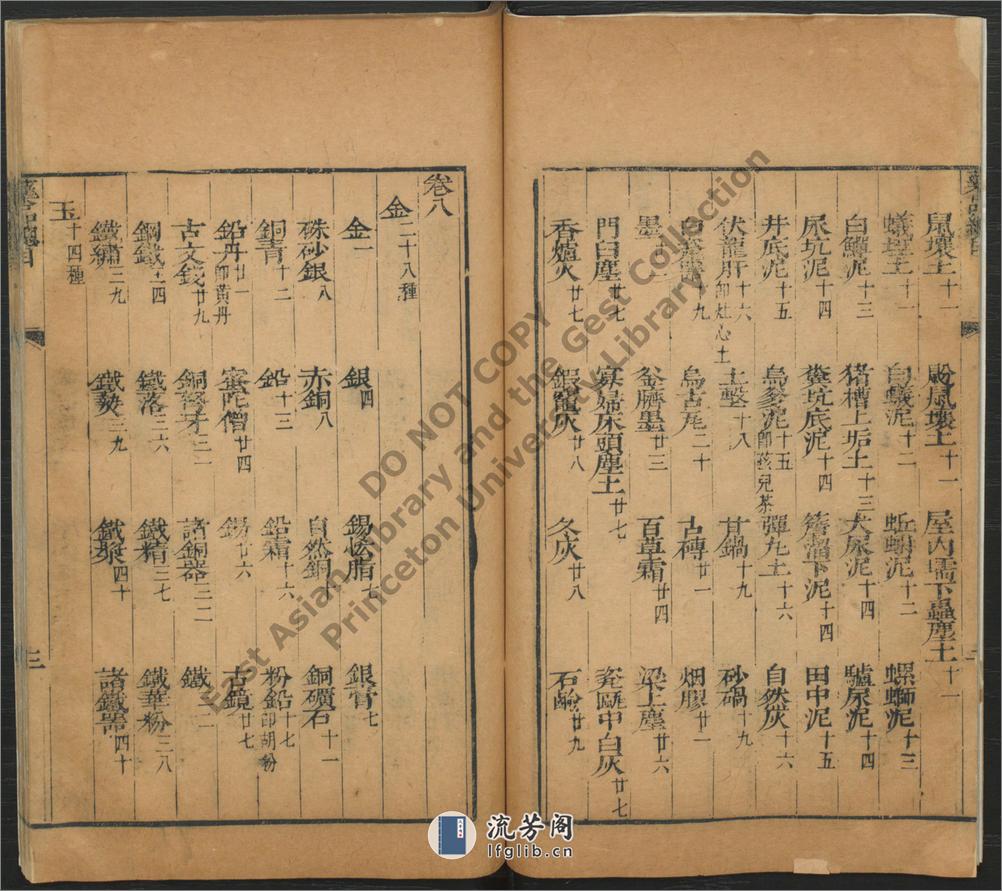 鼠壤土十一 鼢鼠壤土十一 屋內壖下蟲塵土十一
蟻垤土十一 白蟻泥十二 蚯蚓泥十二 螺螄泥十三
白鱔泥十三 猪槽上垢土十三 犬尿泥十四 驢尿泥十四
尿坑泥十四 糞坑底泥十四 簷溜下泥十四 田中泥十五
井底泥十五 烏爹泥十五即孩兒茶 彈丸土十六 自然灰十六
伏龍肝十六即灶心土 土墼十八 甘鍋十九 砂鍋十九
白瓷器十九 烏古瓦二十 古磚廿一 烟膠廿一
墨 釜臍墨廿三 百草霜廿四 梁上塵廿六
門臼塵廿七 寡婦床頭塵土廿七 瓷甌中白灰廿七
香爐灰廿七 鍛竈灰廿八 冬灰廿八 石鹼廿九
卷八
金二十八種
金一 銀四 錫恡脂七 銀膏七
硃砂銀八 赤銅八 自然銅十 銅礦石十一
銅青十二 鉛十三 鉛霜十六 粉鉛十七即胡粉
鉛丹廿一即黃丹 蜜陀僧廿四 錫廿六 古鏡廿七
古文錢廿九 銅弩牙三一 諸銅器三二 鐵
鋼鐵 鐵落三六 鐵精三七 鐵華粉三八
鐵繡三九 鐵爇三九 鐵漿四十 諸鐵器四十
玉十四種
三
DO NOT COPY
East Asian Library and the Gest Collection
Princeton University Library
流芳阁
lfglib.cn